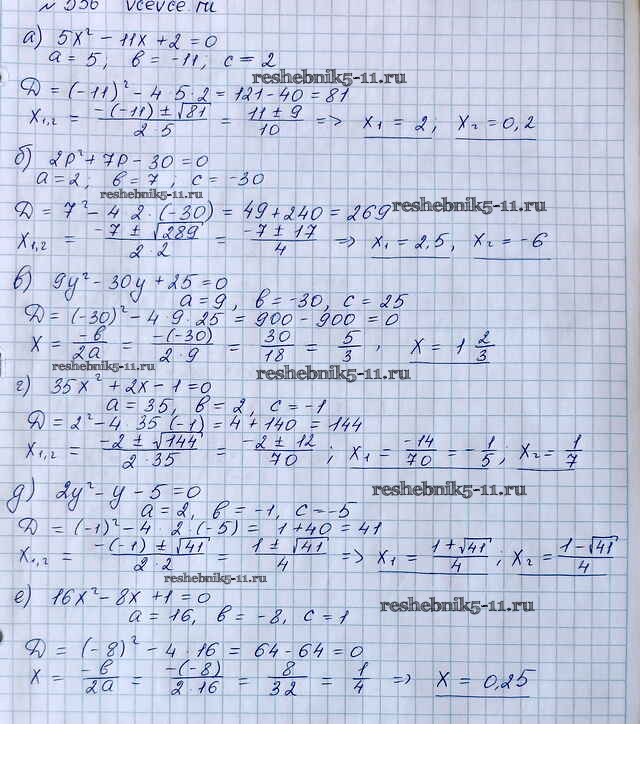 № 556 vcevce.ru
а) 5x² - 11x + 2 = 0
a = 5, в = -11, c = 2
reshebnik5-11.ru
D = (-11)² - 4 · 5 · 2 = 121 - 40 = 81
x₁,₂ = (-(-11) ± √81)/(2 · 5) = (11 ± 9)/10 => x₁ = 2; x₂ = 0,2
б) 2p² + 7p - 30 = 0
a = 2; в = 7; c = -30
reshebnik5-11.ru
D = 7² - 4 · 2 · (-30) = 49 + 240 = 269 reshebnik5-11.ru
x₁,₂ = (-7 ± √289)/(2 · 2) = (-7 ± 17)/4 => x₁ = 2,5, x₂ = -6
в) 9y² - 30y + 25 = 0
a = 9, в = -30, c = 25
D = (-30)² - 4 · 9 · 25 = 900 - 900 = 0
x = -в/2a = -(-30)/(2 · 9) = 30/18 = 5/3, x = 1 2/3
reshebnik5-11.ru reshebnik5-11.ru
г) 35x² + 2x - 1 = 0
a = 35, в = 2, c = -1
D = 2² - 4 · 35 (-1) = 4 + 140 = 144
x₁,₂ = (-2 ± √144)/(2 · 35) = (-2 ± 12)/70; x₁ = -14/70 = -1/5; x₂ = 1/7
д) 2y² - y - 5 = 0 reshebnik5-11.ru
a = 2, в = -1, c = -5
D = (-1)² - 4 · 2 · (-5) = 1 + 40 = 41
x₁,₂ = (-(-1) ± √41)/(2 · 2) = (1 ± √41)/4 => x₁ = (1 + √41)/4; x₂ = (1 - √41)/4
reshebnik5-11.ru
е) 16x² - 8x + 1 = 0 reshebnik5-11.ru
a = 16, в = -8, c = 1
D = (-8)² - 4 · 16 = 64 - 64 = 0
x = -в/2a = -(-8)/(2 · 16) = 8/32 = 1/4 => x = 0,25